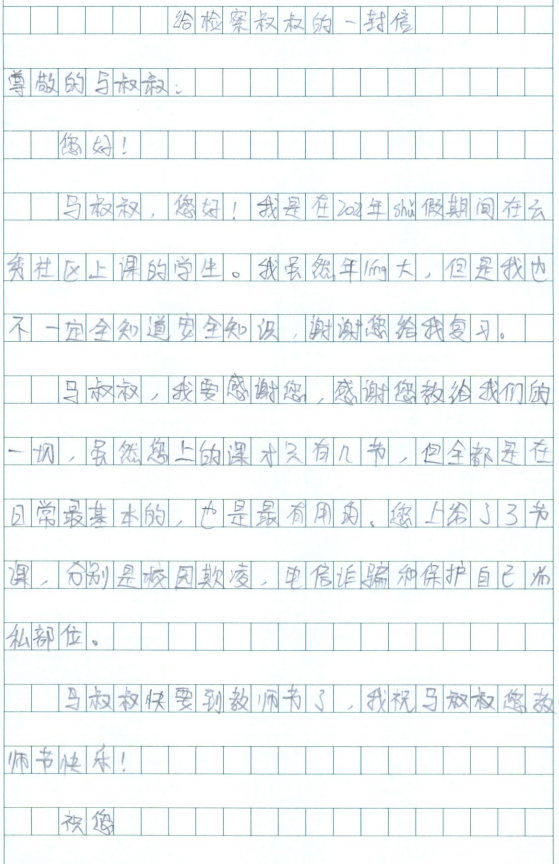 给检察叔叔的一封信
尊敬的马叔叔：
您好！
马叔叔，您好！我是在2021年shǔ假期间在云
秀社区上课的学生。我虽然年líng大，但是我也
不一定全知道安全知识，谢谢您给我复习。
马叔叔，我要感谢您，感谢您教给我们的
一切，虽然您上的课才只有几节，但全都是在
日常最基本的，也是最有用的。您上给了3节
课，分别是校园欺凌，电信诈骗和保护自己
私部位。
马叔叔快要到教师节了，我祝马叔叔您教
师节快乐！
祝您